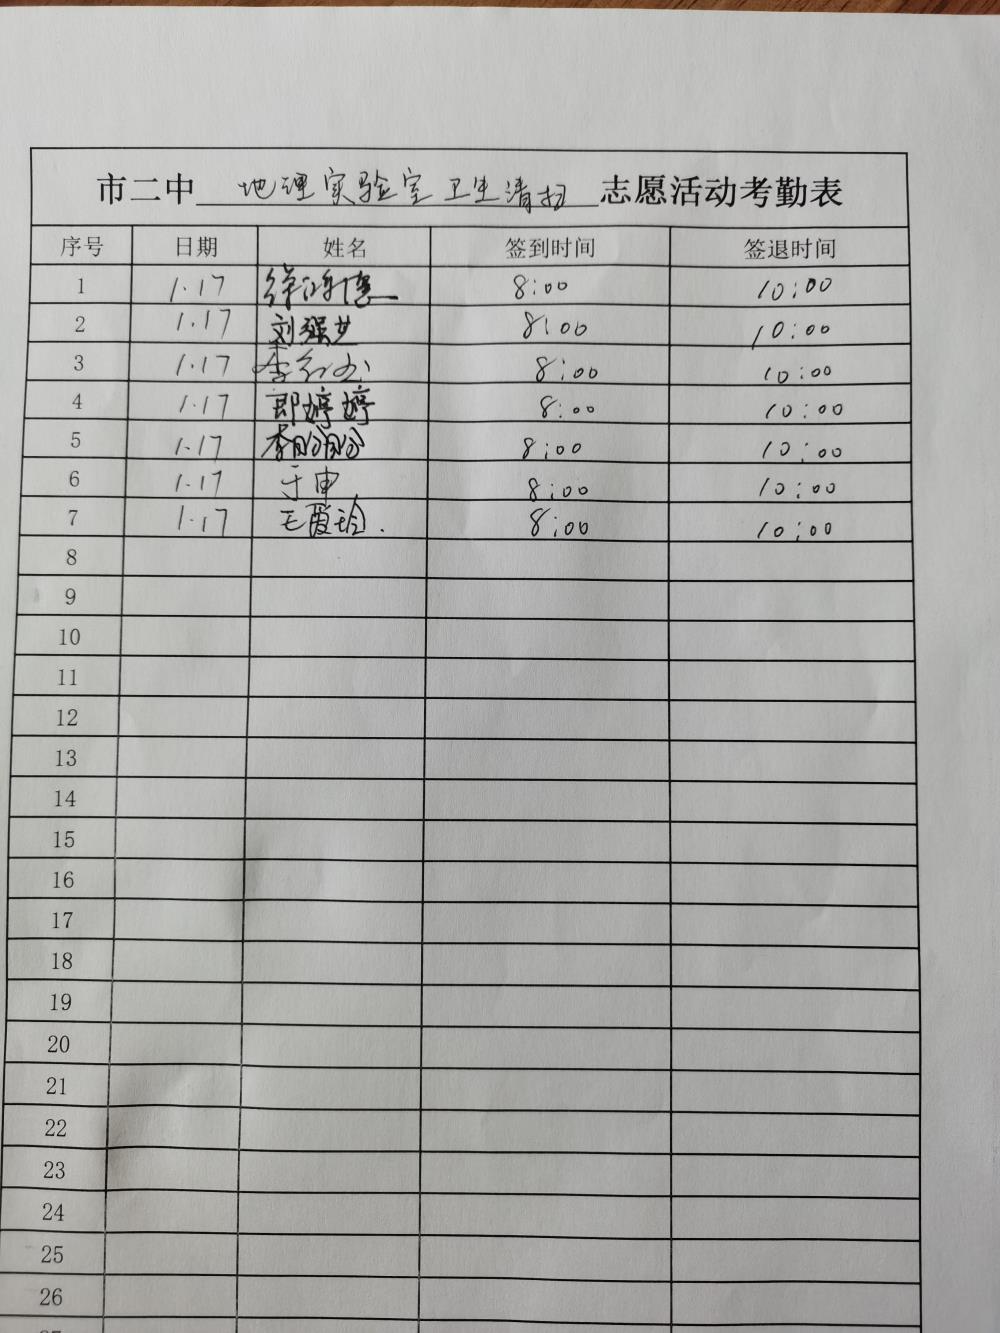 市二中 地理实验室卫生清扫 志愿活动考勤表
序号 日期 姓名 签到时间 签退时间
1 1.17 8:00 10:00
2 1.17 刘强女 8:00 10:00
3 1.17 8:00 10:00
4 1.17 郎婷婷 8:00 10:00
5 1.17 李盼盼 8:00 10:00
6 1.17 于申 8:00 10:00
7 1.17 王霞玲. 8:00 10:00
8
9
10
11
12
13
14
15
16
17
18
19
20
21
22
23
24
25
26
27